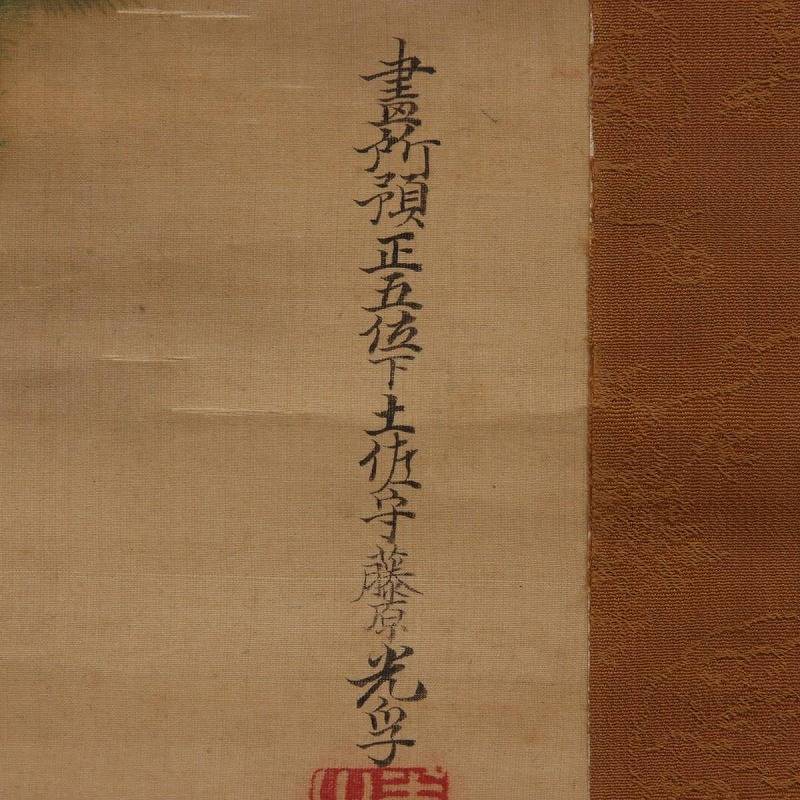 畫所預正五位下土佐守藤原光孚